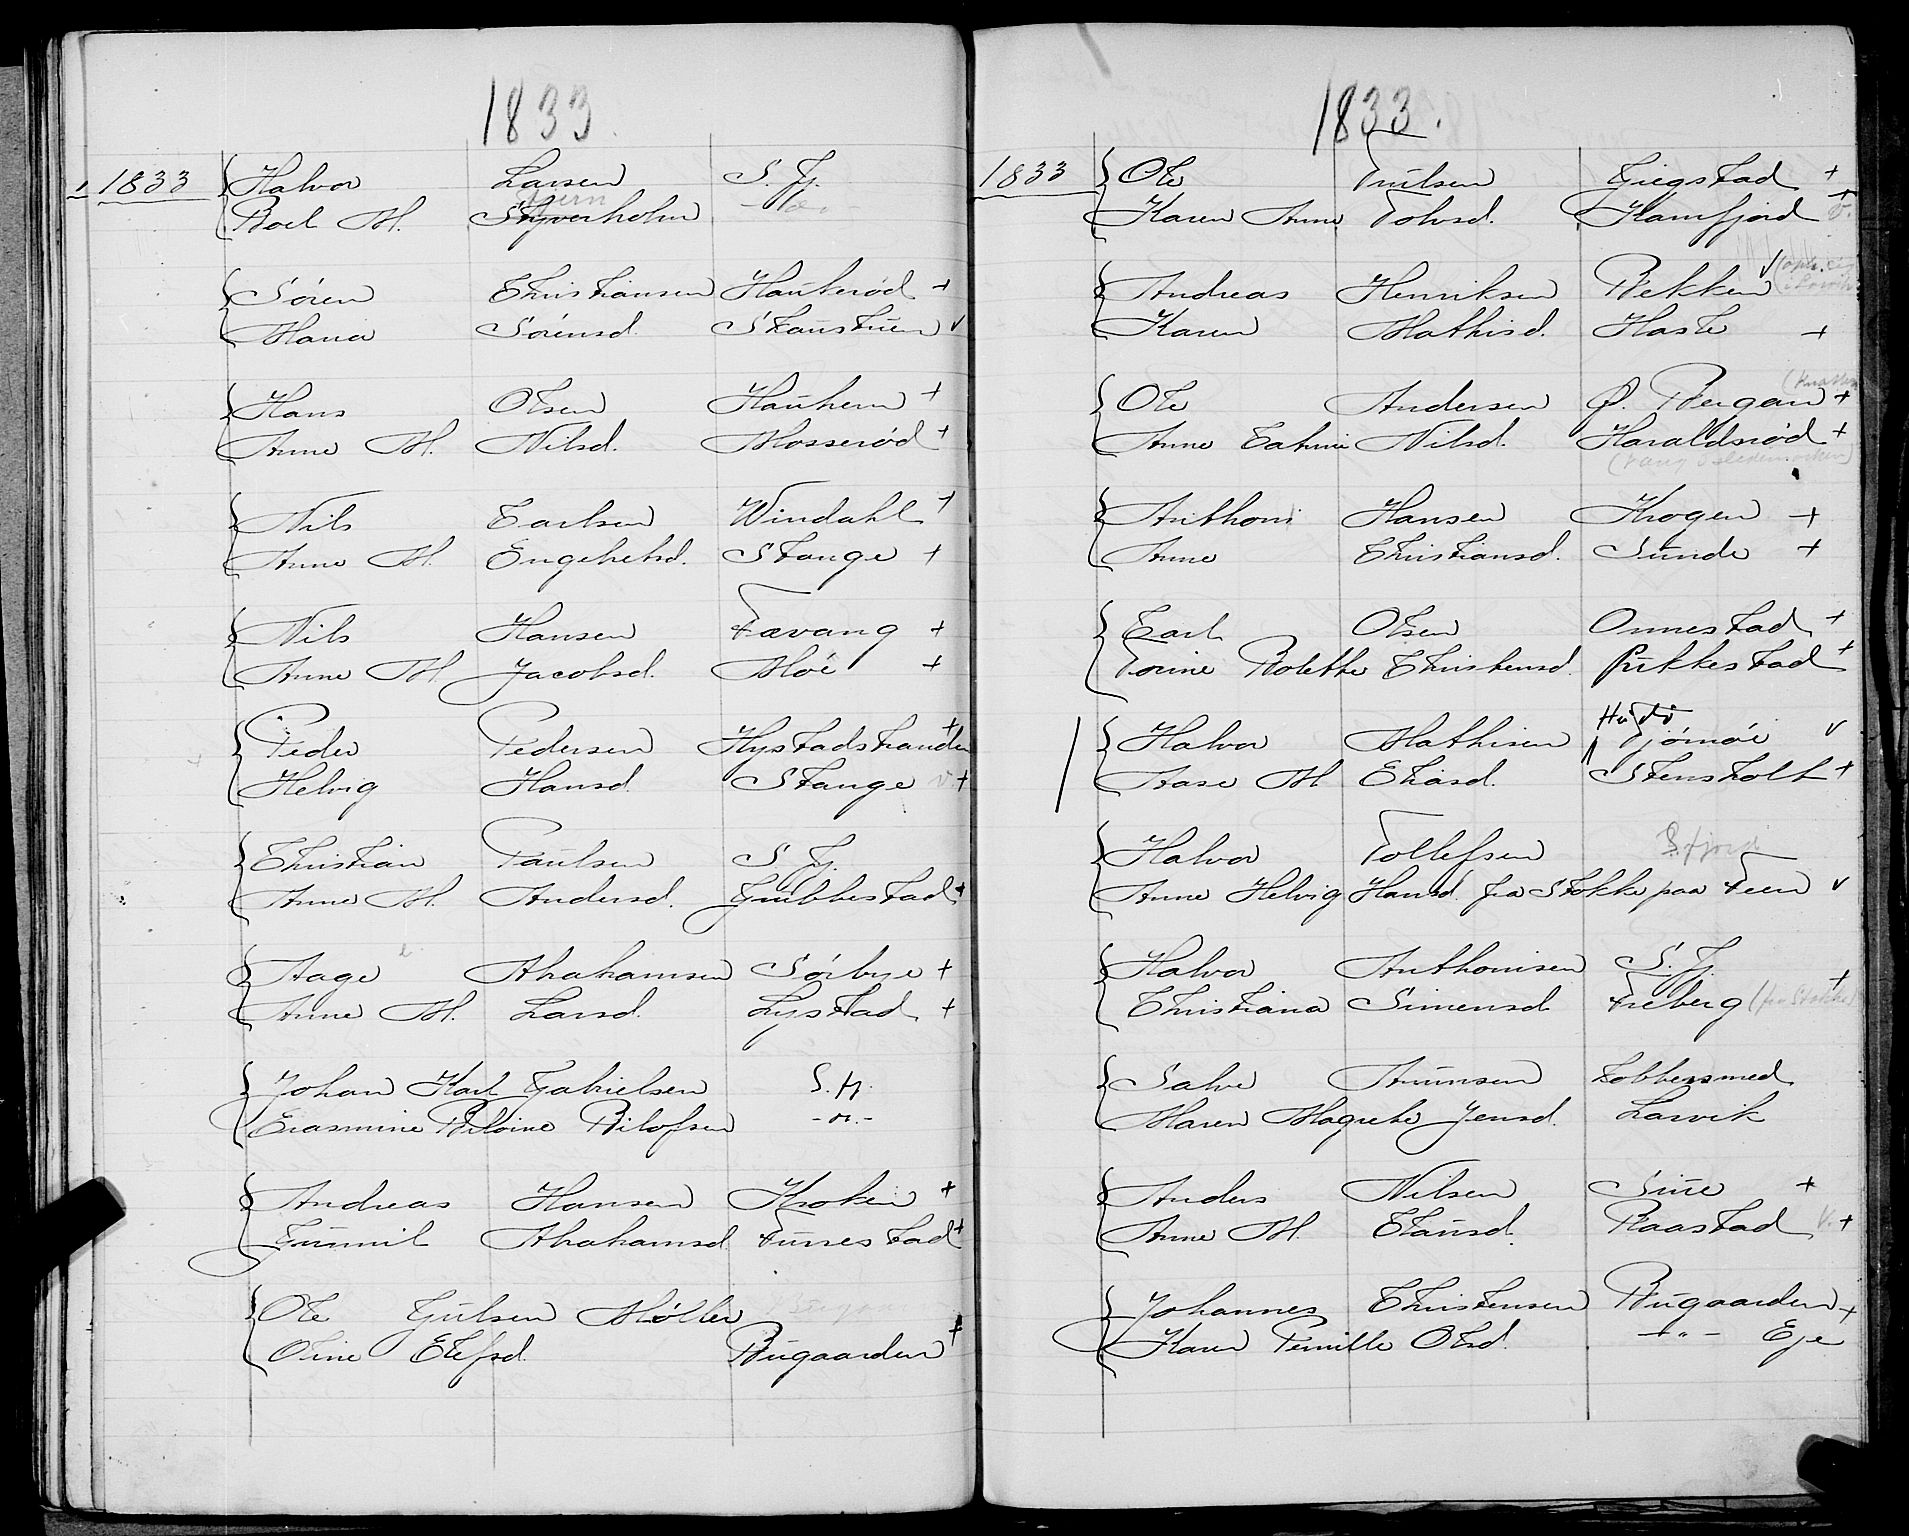 1833.
1833 Halvor Larsen S. Fj.
Boel M. Styverholm - " -
Sören Christiansen Haukerød +
Maria Sörensd. Skaustuen v
Hans Olsen Hauhern +
Anne M. Nilsd. Mosserød +
Nils Carlsen Windahl +
Anne M. Engebretsd. Stange +
Nils Hansen Fævang +
Anne M. Jacobsd. Moe +
Peder Pedersen Hystadstranden +
Helvig Hansd. Stange v. +
Christian Paulsen S. Fj.
Anne M. Andersd. Gubbestad +
Aage Abrahamsen Sörbye +
Anne M. Larsd. Lystad +
Johan Karl Gabrielsen S. Fj.
Erasmine - " -
Andreas Hansen Kroken +
Gunnil Abrahamsd. Furrestad +
Ole Gulsen Møller
Oline Elefsd. Bugaarden +
1833.
1833 Ole Truls​en Gjegstad +
Karen Anne Tolvsd. Kamfjord +
Andreas Henriksen Bekken v
Karen Mathisd. Hasle +
Ole Andersen Ø. Bergan +
Anne Catrine Nilsd. Haraldsrød +
Anthoni Hansen Krogen +
Anne Christiansd. Sunde +
Carl Olsen Onnestad +
Torine Bolette Christensd. Pukkestad +
Halvor Mathisen Tjömöe v
Aase M. Eliasd. Stensholt +
Halvor Tollefsen S.fjord
Anne Helvig Hansd. fra Stokke paa Feen v
Halvor Anthonisen S. Fj.
Christiana Simensd. Freberg (fra Stokke) +
Salve Aanunsen Kobbersmed
Maren Magrete Jensd. Larvik
Anders Nilsen Sure +
Anne M. Clausd. Raastad v. +
Johannes Christensen Bugaarden +
Karen Pernille Olsd. - " - Eje